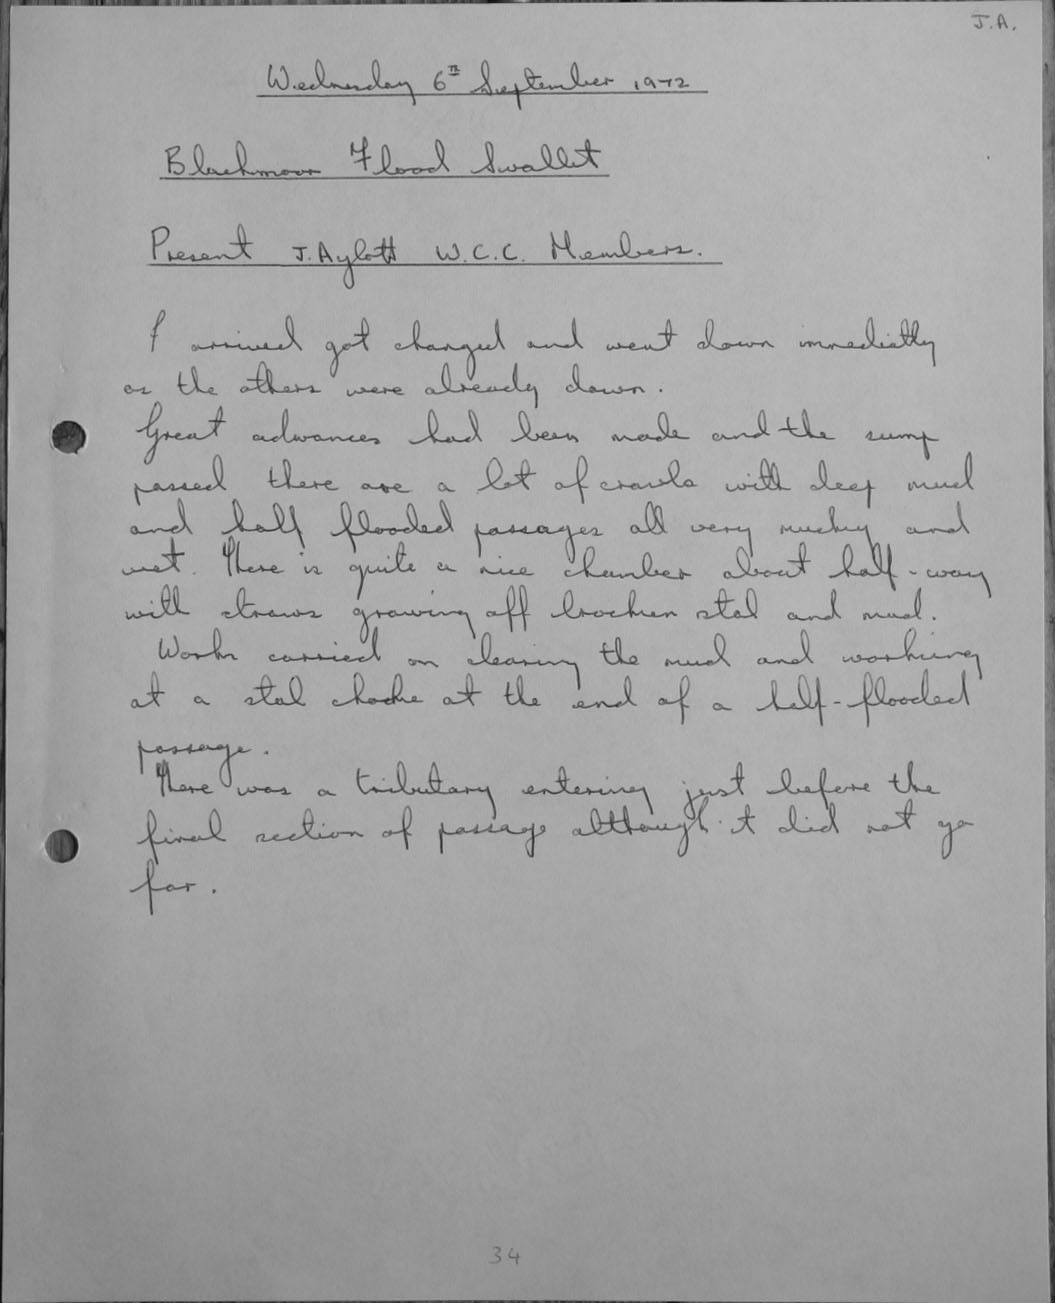 J.A.
Wednesday 6th September 1972
Blackmoor Flood Swallet
Present J. Aylott W.C.C. Members.
I arrived got changed and went down immediatly
as the others were already down.
Great advances had been made and the sump
passed there are a lot of crawls with deep mud
and half flooded passages all very mucky and
wet. There is quite a nice chamber about half-way
with straws growing off brocken stal and mud.
Work carried on clearing the mud and working
at a stal choke at the end of a half-flooded
passage.
There was a tributary entering just before the
final section of passage although it did not go
far.
34